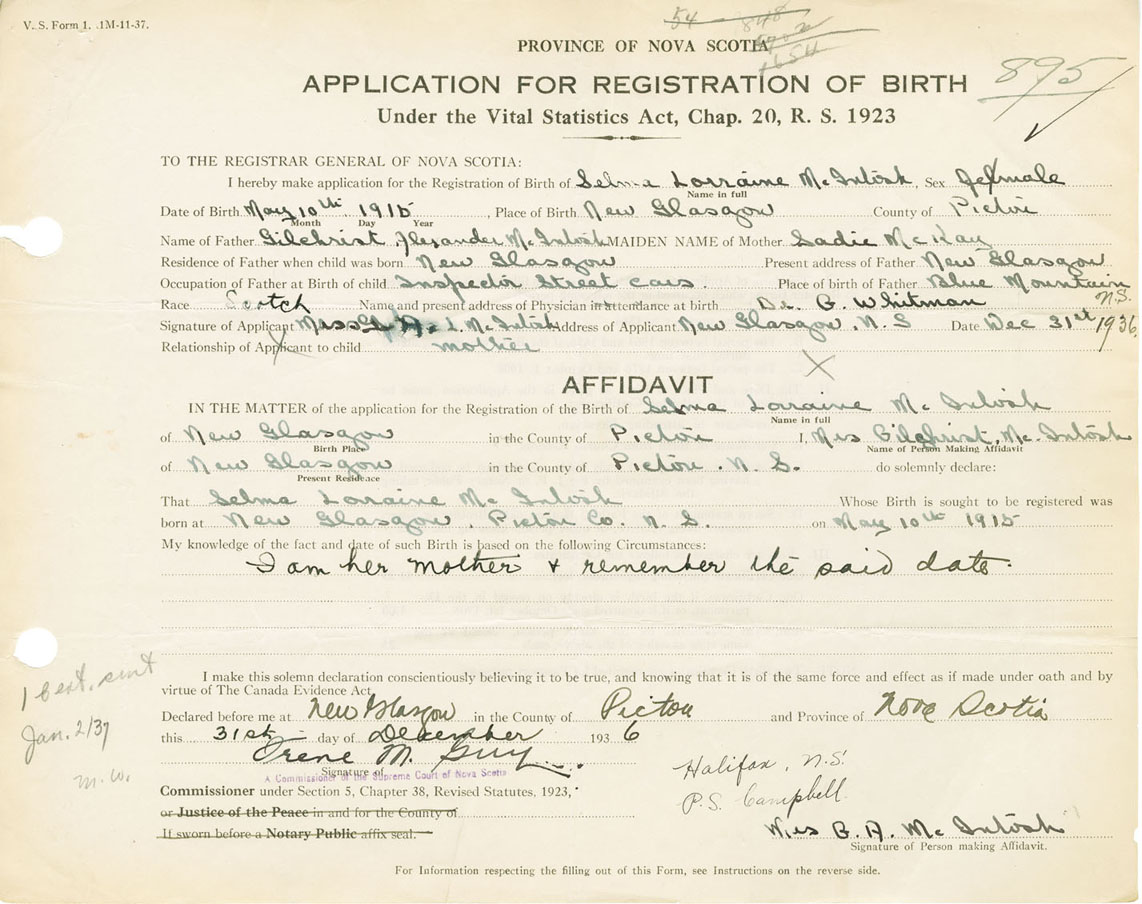 V. S. Form 1. 1M-11-37.
54
848
1654
PROVINCE OF NOVA SCOTIA
895
APPLICATION FOR REGISTRATION OF BIRTH
Under the Vital Statistics Act, Chap. 20, R. S. 1923
TO THE REGISTRAR GENERAL OF NOVA SCOTIA:
I hereby make application for the Registration of Birth of Selma Lorraine McIntosh, Sex Female
Name in full
Date of Birth May 10th 1915, Place of Birth New Glasgow County of Pictou
Month Day Year
Name of Father Gilchrist Alexander McIntosh MAIDEN NAME of Mother Sadie McKay
Residence of Father when child was born New Glasgow Present address of Father New Glasgow
Occupation of Father at Birth of child Inspector Street cars. Place of birth of Father Blue Mountain N.S.
Race Scotch Name and present address of Physician in attendance at birth Dr. G. Whitman
Signature of Applicant Mrs G. A. McIntosh Address of Applicant New Glasgow, N.S Date Dec 31st 1936
Relationship of Applicant to child mother
X
AFFIDAVIT
IN THE MATTER of the application for the Registration of the Birth of Selma Lorraine McIntosh
Name in full
of New Glasgow in the County of Pictou I, Mrs Gilchrist McIntosh
Birth Place Name of Person Making Affidavit
of New Glasgow in the County of Pictou, N.S. do solemnly declare:
Present Residence
That Selma Lorraine McIntosh Whose Birth is sought to be registered was
born at New Glasgow, Pictou Co. N.S. on May 10th 1915
My knowledge of the fact and date of such Birth is based on the following Circumstances:
I am her mother & remember the said date.
I make this solemn declaration conscientiously believing it to be true, and knowing that it is of the same force and effect as if made under oath and by
virtue of The Canada Evidence Act.
1 cert. sent
Jan. 2/37
M.W.
Declared before me at New Glasgow in the County of Pictou and Province of Nova Scotia
this 31st day of December 1936
Irene M. Guy
Signature of
A Commissioner of the Supreme Court of Nova Scotia
Halifax, N.S.
P.S. Campbell.
Commissioner under Section 5, Chapter 38, Revised Statutes, 1923,
or Justice of the Peace in and for the County of
If sworn before a Notary Public affix seal.
Mrs G. A. McIntosh
Signature of Person making Affidavit.
For Information respecting the filling out of this Form, see Instructions on the reverse side.